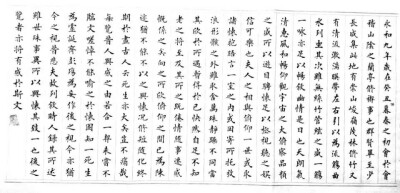 永和九年歲在癸丑暮春之初會於會
稽山陰之蘭亭脩禊事也群賢畢至少
長咸集此地有崇山峻嶺茂林脩竹又
有清流激湍暎帶左右引以為流觴曲
水列坐其次雖無絲竹管絃之盛一觴
一詠亦足以暢敘幽情是日也天朗氣
清惠風和暢仰觀宇宙之大俯察品類
之盛所以遊目騁懷足以極視聽之娛
信可樂也夫人之相與俯仰一世或取
諸懷抱悟言一室之內或因寄所託放
浪形骸之外雖趣舍萬殊靜躁不同當
其欣於所遇暫得於己快然自足不知
老之將至及其所之既惓情隨事遷感
慨係之矣向之所欣俛仰之間已為陳
迹猶不能不以之興懷況脩短隨化終
期於盡古人云死生亦大矣豈不痛哉
每覽昔人興感之由若合一契未嘗不
臨文嗟悼不能喻之於懷固知一死生
為虛誕齊彭殤為妄作後之視今亦猶
今之視昔悲夫故列敘時人錄其所述
雖世殊事異所以興懷其致一也後之
覽者亦將有感於斯文